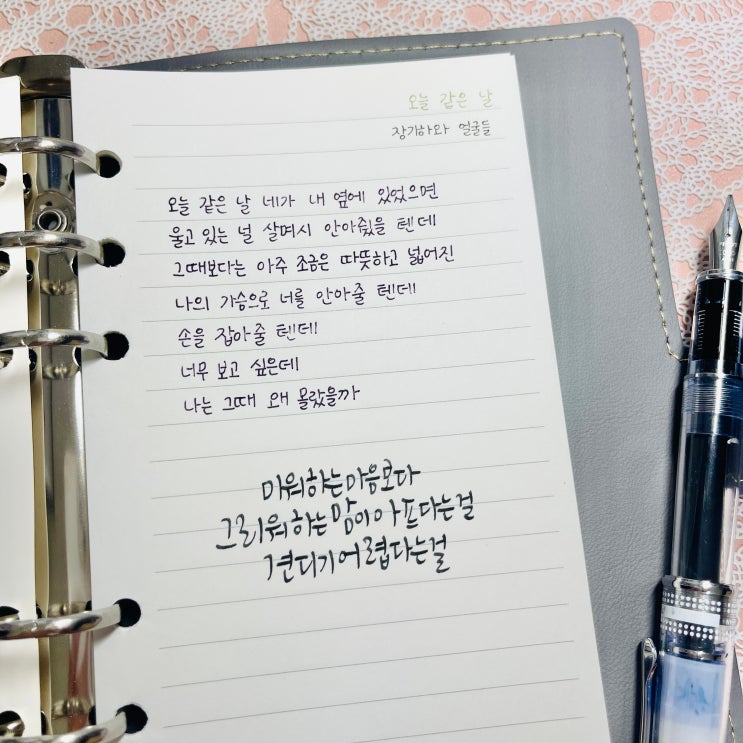 오늘 같은 날
장기하와 얼굴들
오늘 같은 날 네가 내 옆에 있었으면
울고 있는 널 살며시 안아줬을 텐데
그때보다는 아주 조금은 따뜻하고 넓어진
나의 가슴으로 너를 안아줄 텐데
손을 잡아줄 텐데
너무 보고 싶은데
나는 그때 왜 몰랐을까
미워하는마음보다
그리워하는맘이아프다는걸
견디기어렵다는걸